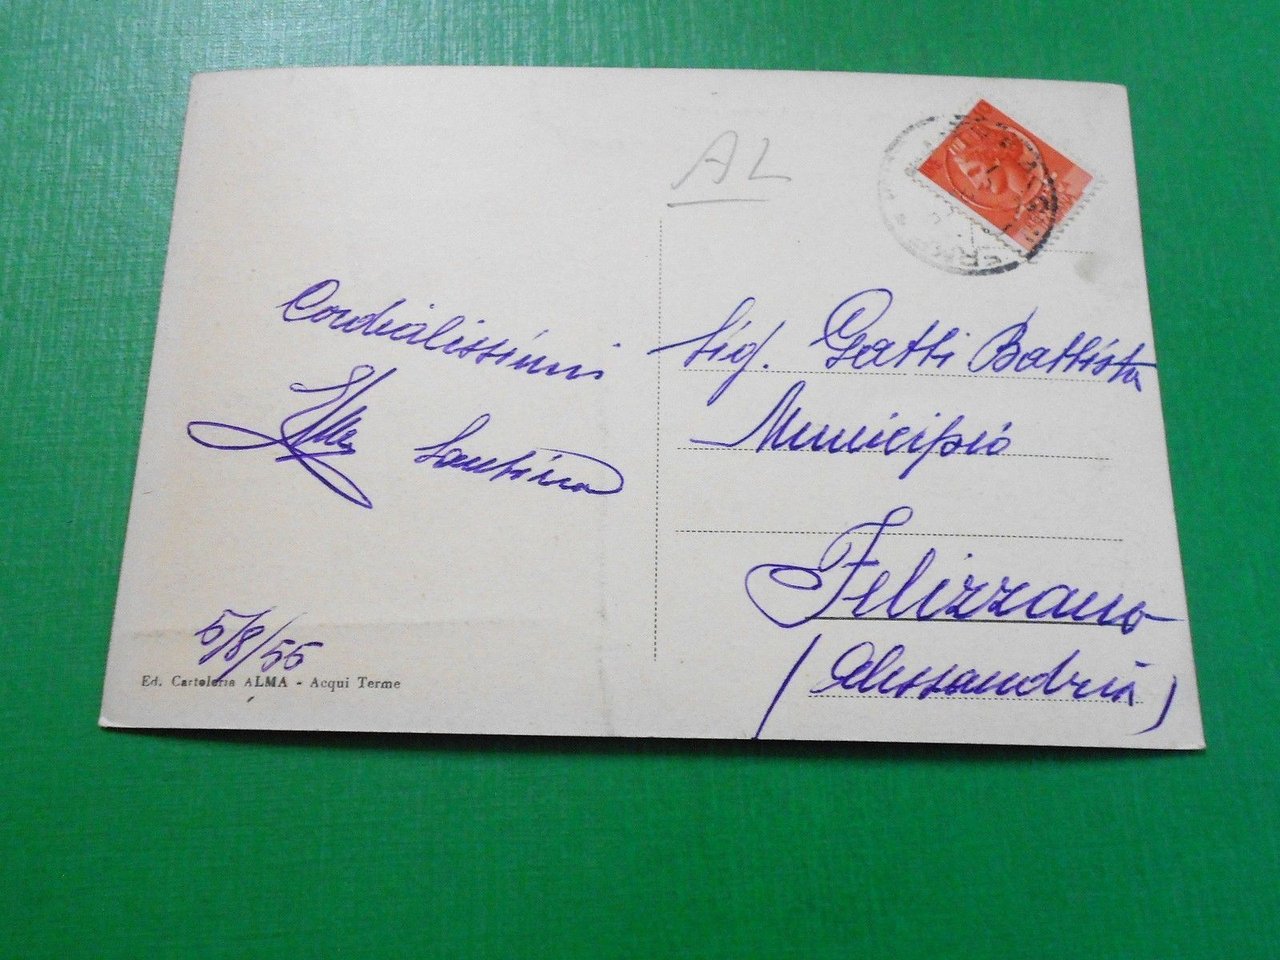 AL
Cordialissimi
Santina
5/8/55
Ed. Cartoleria ALMA - Acqui Terme
Sig. Gatti Battista
Municipio
Felizzano
(Alessandria)